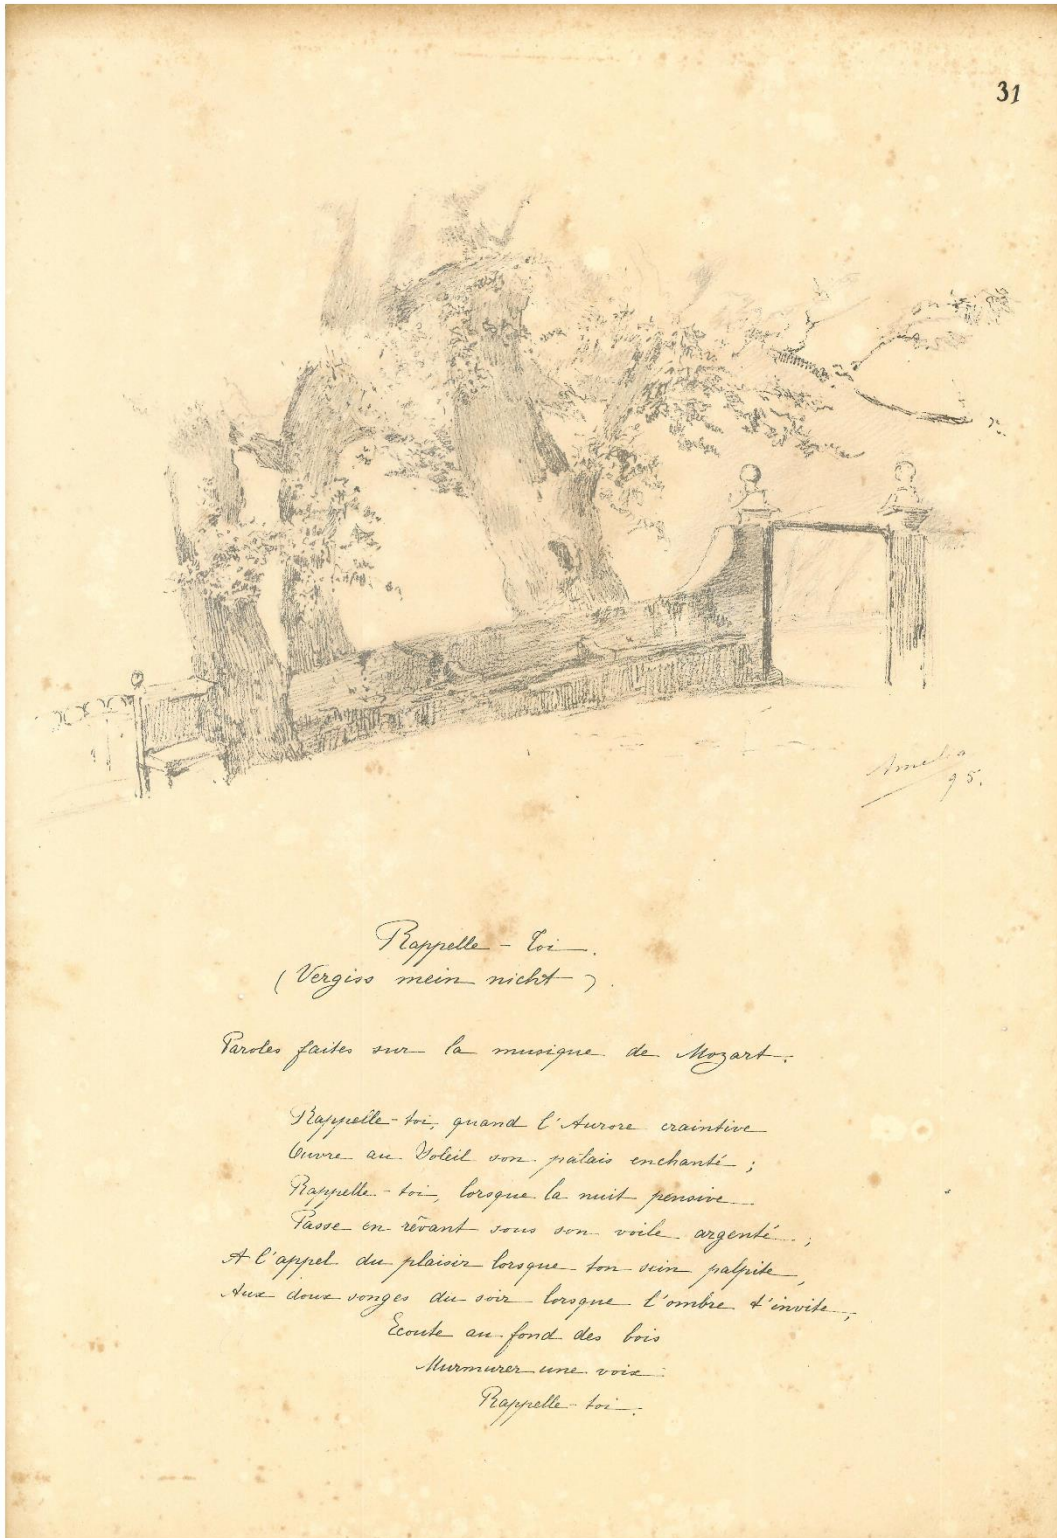 31
Amelia
95.
Rappelle-Toi.
(Vergiss mein nicht).
Paroles faites sur la musique de Mozart.
Rappelle-toi, quand l'Aurore craintive
Ouvre au Soleil son palais enchanté ;
Rappelle-toi, lorsque la nuit pensive
Passe en rêvant sous son voile argenté ;
A l'appel du plaisir lorsque ton sein palpite,
Aux doux songes du soir lorsque l'ombre t'invite,
Ecoute au fond des bois
Murmurer une voix :
Rappelle-toi.